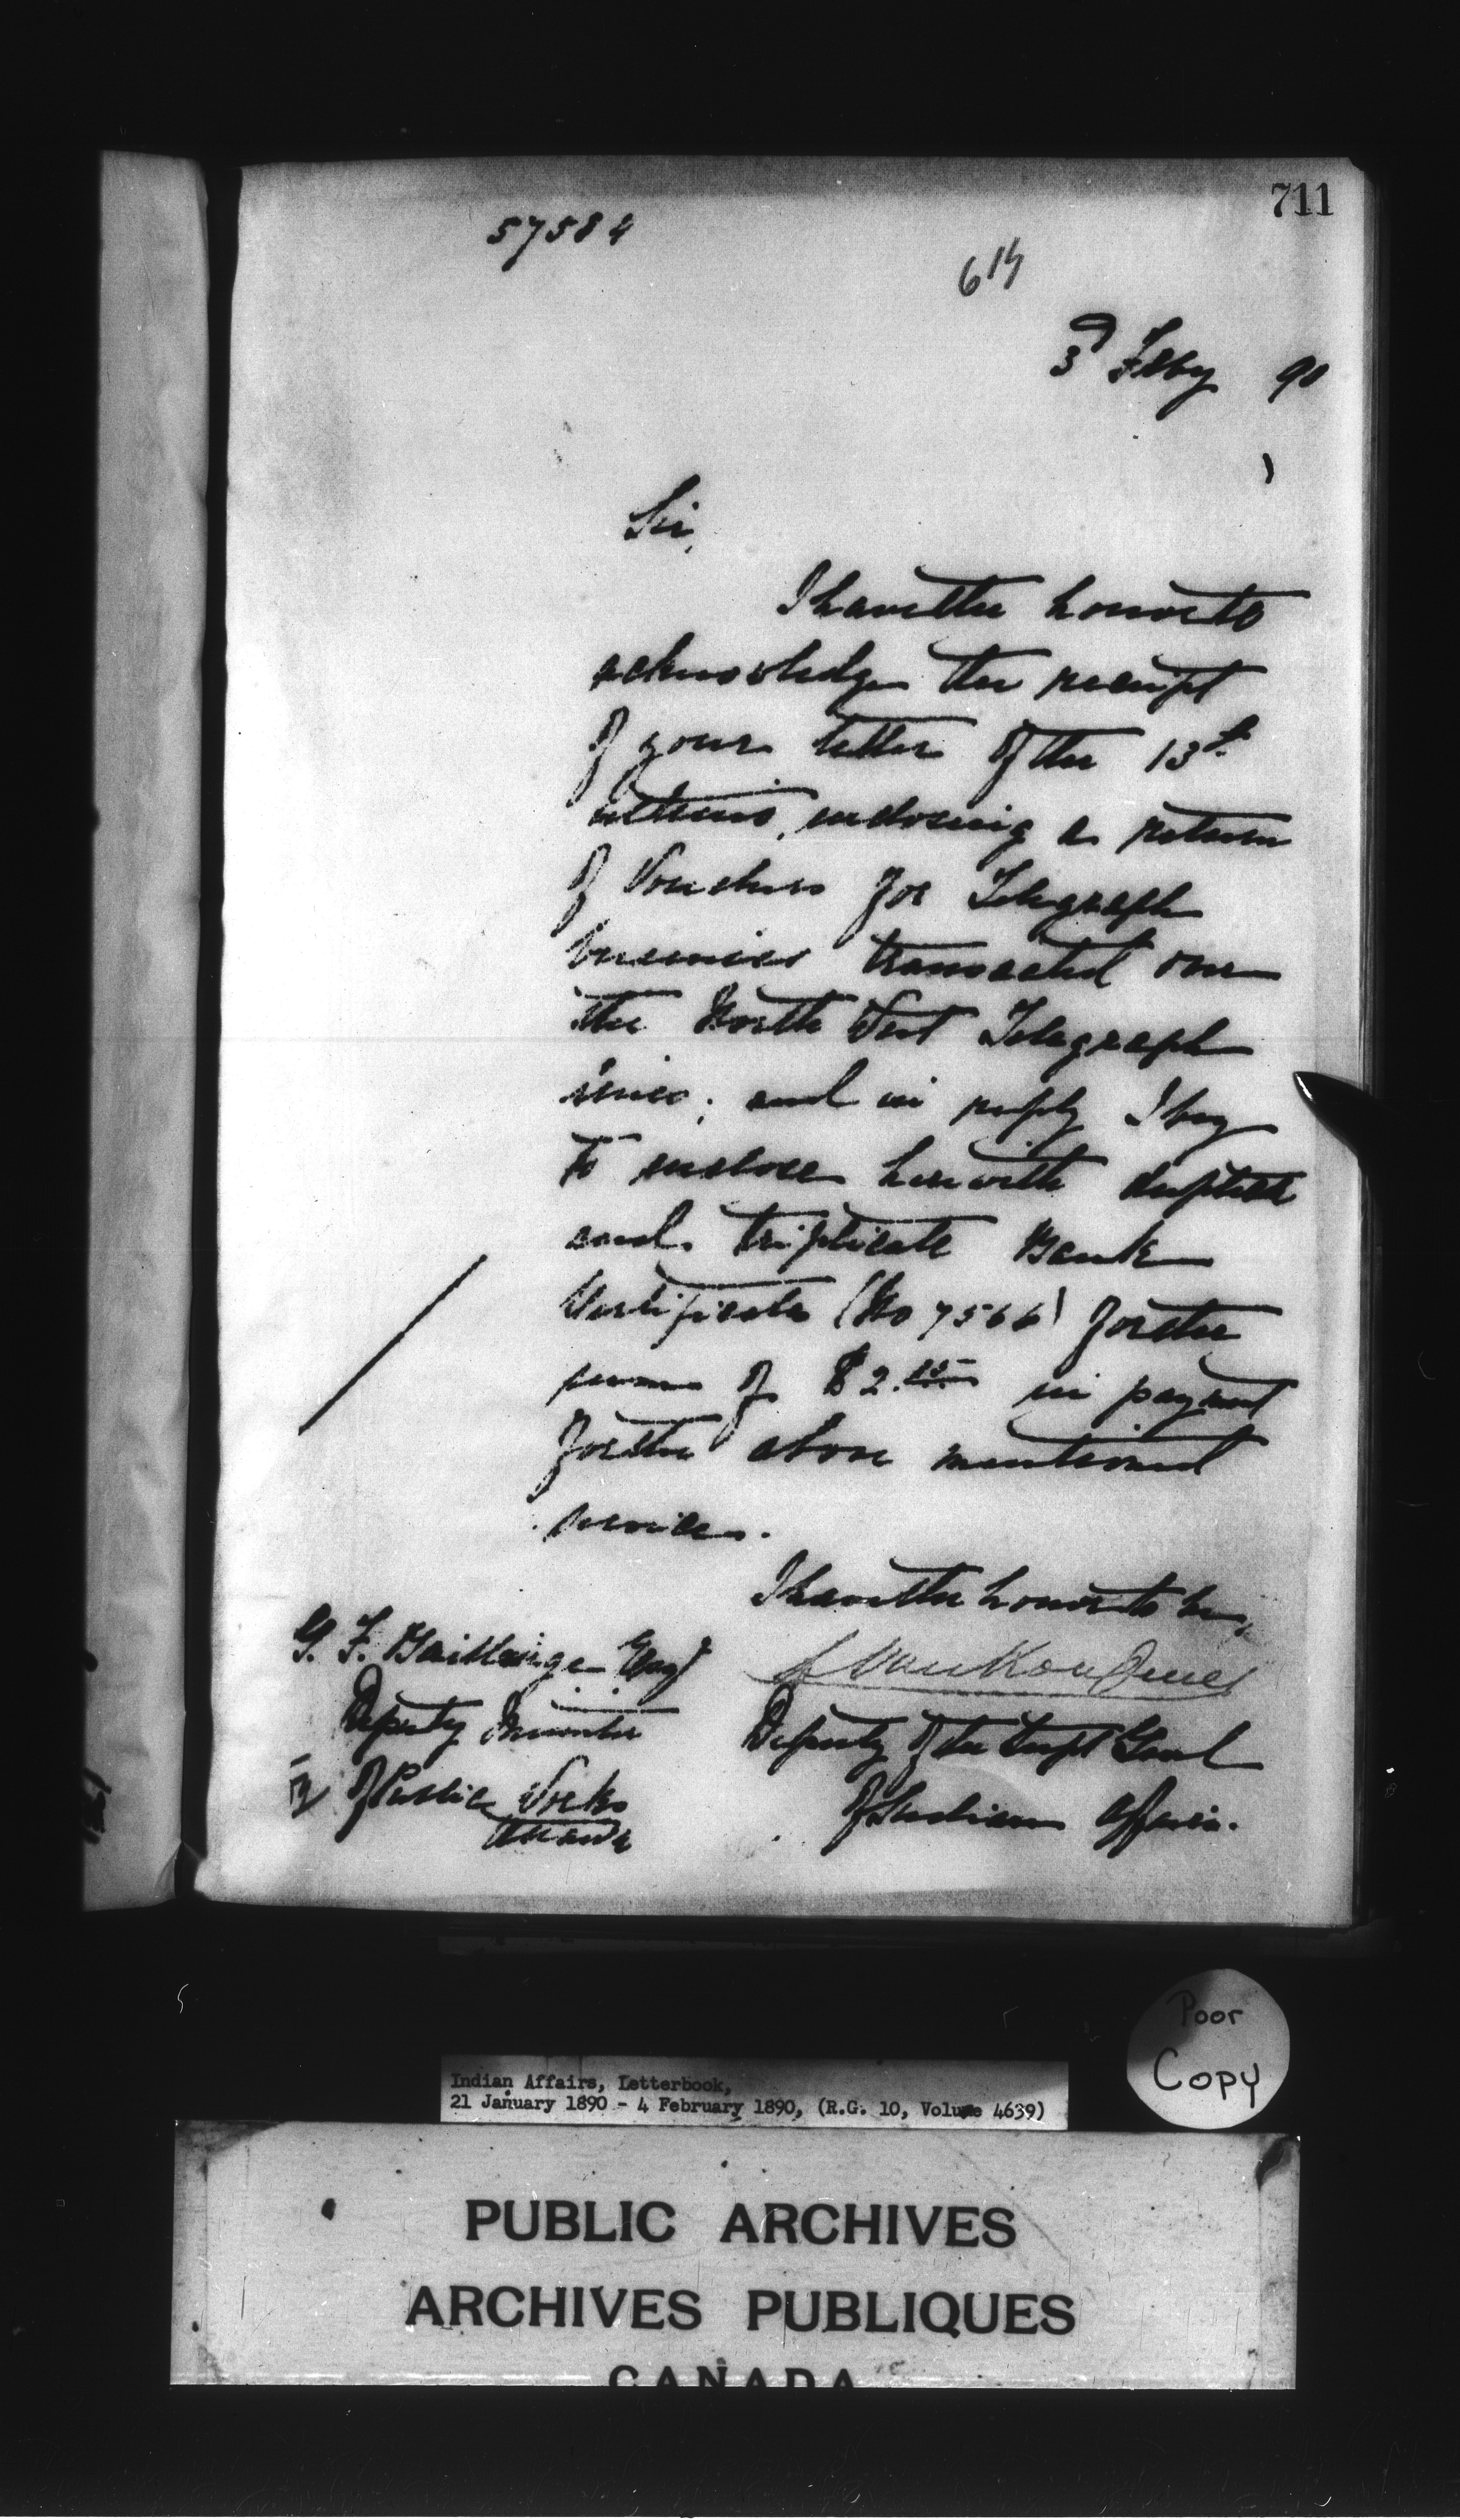 711
57584
3d Feby 90
Sir,
I have the honor to
acknowledge the receipt
of your letter of the 13th
ultimo, enclosing a return
of Vouchers for Telegraph
business transacted over
the North West Telegraph
lines; and in reply I beg
to enclose herewith duplicate
and triplicate Bank
Certificate (No 7566) for the
sum of $2. in payment
for the above mentioned
services.
I have the honor to be,
G. F. Baillairge Esqr
L VanKoughnet
Deputy Minister
Deputy of the Supt Genl
of Public Works
of Indian Affairs.
Ottawa
Poor
Copy
Indian Affairs, Letterbook,
21 January 1890 - 4 February 1890, (R.G. 10, Volume 4639)
PUBLIC ARCHIVES
ARCHIVES PUBLIQUES
CANADA